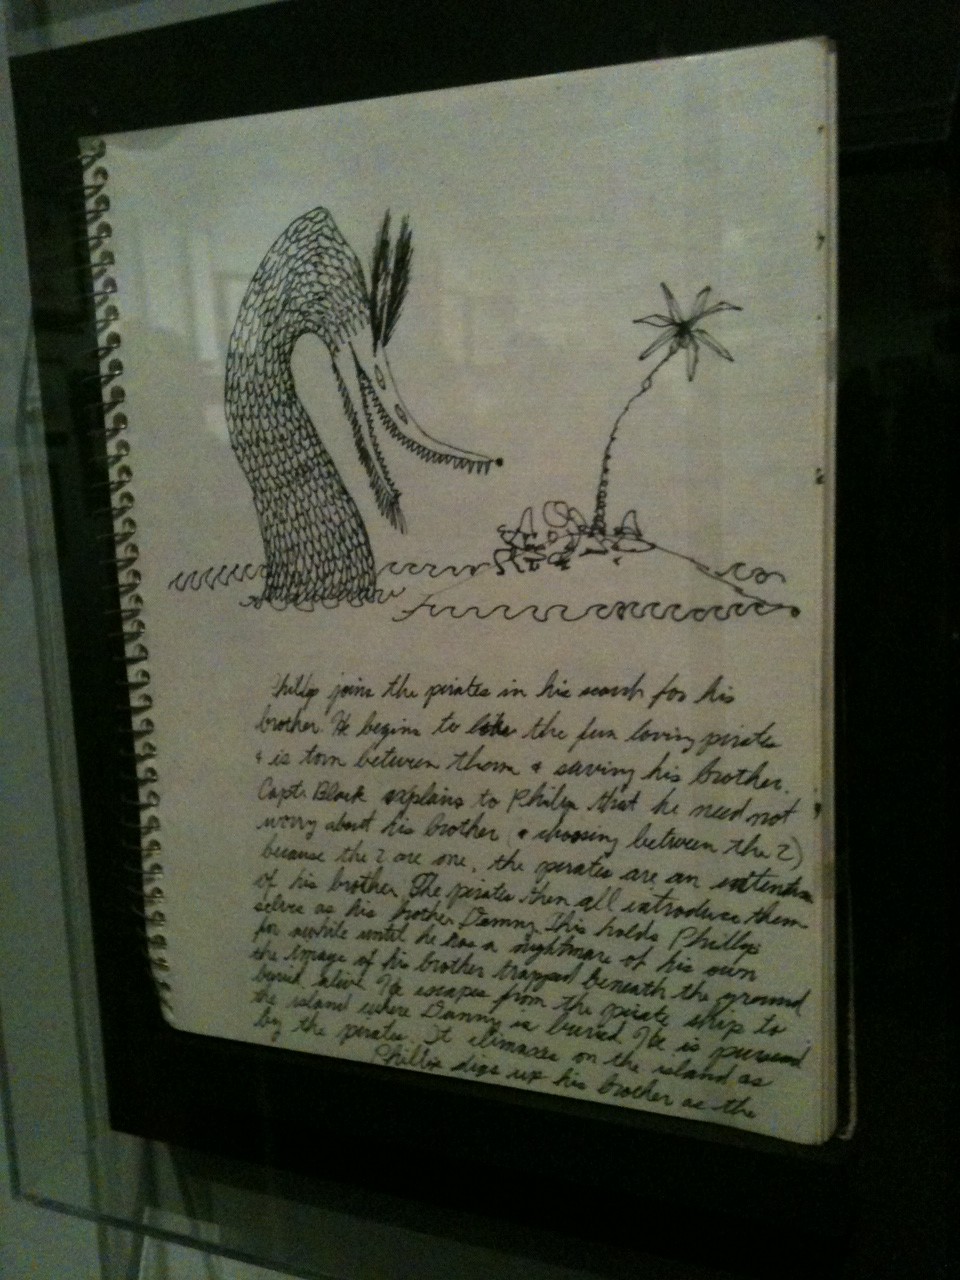 Phillip joins the pirates in his search for his
brother. He begins to like the fun loving pirates
& is torn between them & saving his brother.
Capt. Black explains to Philip that he need not
worry about his brother (& choosing between the 2)
because the 2 are one, the pirates are an extension
of his brother. The pirates then all introduce them
selves as his brother Danny. This holds Phillip
for awhile until he has a nightmare of his own
the image of his brother trapped beneath the ground
buried alive. He escapes from the pirate ship to
the island where Danny is buried. He is pursued
by the pirates. It climaxes on the island as
Phillip digs up his brother as the